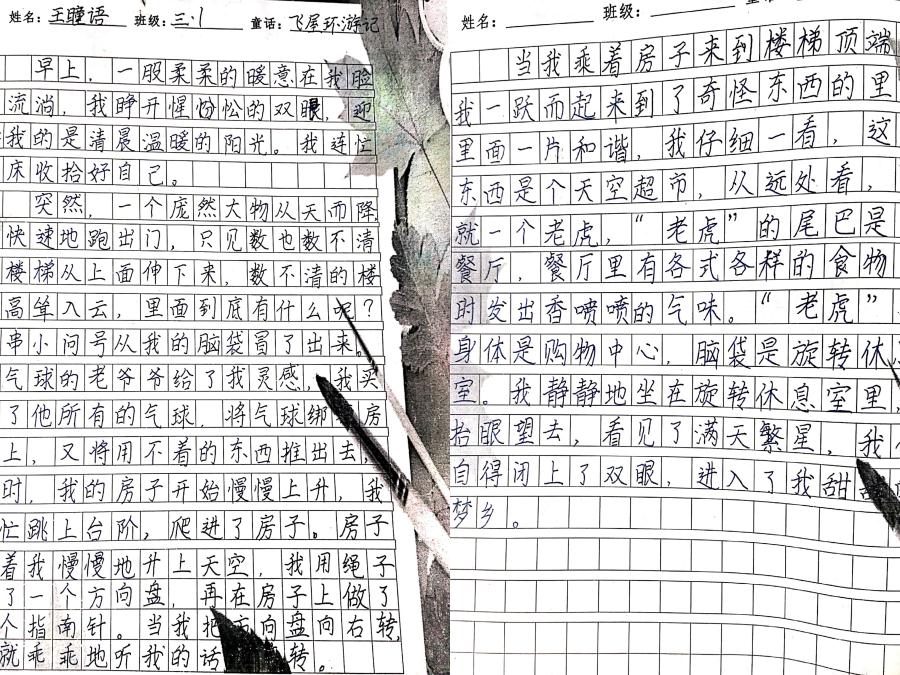 姓名：王瞳语 班级：三.1 童话：飞屋环游记
早上，一股柔柔的暖意在我脸
流淌，我睁开惺忪松的双眼，迎
我的是清晨温暖的阳光。我连忙
床收拾好自己。
突然，一个庞然大物从天而降
快速地跑出门，只见数也数不清
楼梯从上面伸下来，数不清的楼
高耸入云，里面到底有什么呢？
串小问号从我的脑袋冒了出来。
气球的老爷爷给了我灵感，我买
了他所有的气球，将气球绑 房
上，又将用不着的东西推出去，
时，我的房子开始慢慢上升，我
忙跳上台阶，爬进了房子。房子
着我慢慢地升上天空，我用绳子
了一个方向盘，再在房子上做了
个指南针。当我把方向盘向右转
就乖乖地听我的话 转。
姓名： 班级：
当我乘着房子来到楼梯顶端
我一跃而起来到了奇怪东西的里
里面一片和谐，我仔细一看，这
东西是个天空超市，从远处看，
就一个老虎，“老虎”的尾巴是
餐厅，餐厅里有各式各样的食物
时发出香喷喷的气味。“老虎”
身体是购物中心，脑袋是旋转休
室。我静静地坐在旋转休息室里，
抬眼望去，看见了满天繁星，我
自得闭上了双眼，进入了我甜
梦乡。